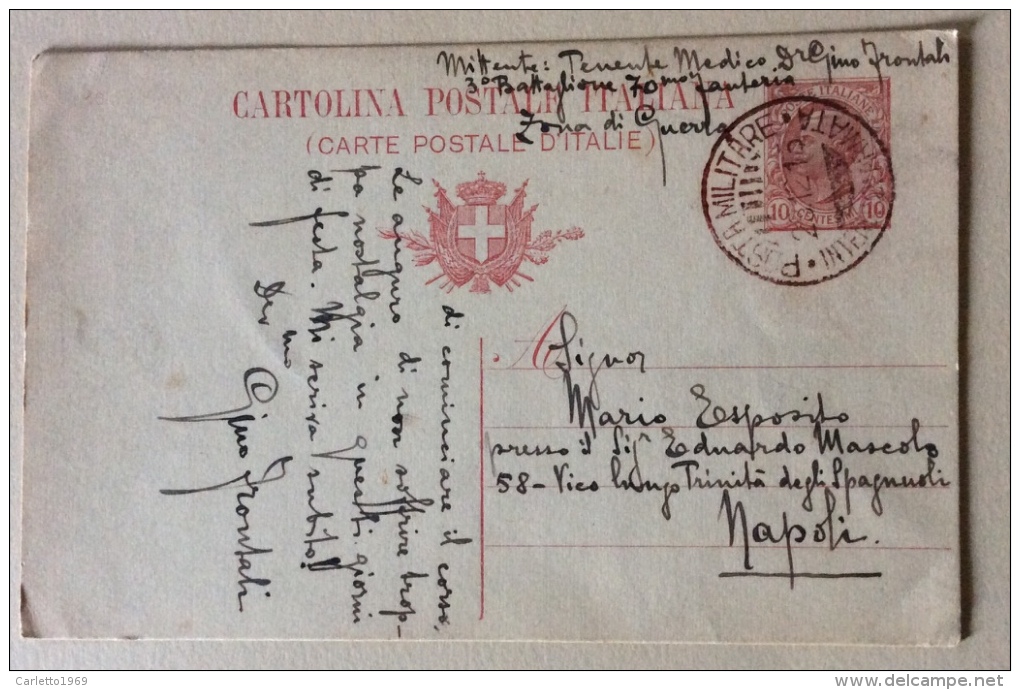 Mittente: Tenente Medico Dr Gino Frontali
3° Battaglione 70mo Fanteria
Zona di Guerra
CARTOLINA POSTALE ITALIANA
(CARTE POSTALE D'ITALIE)
POSTE ITALIANE
10 CENTES 10
POSTA MILITARE
A Signor
Mario Esposito
presso il Sigr Eduardo Mascolo
58 - Vico lungo Trinità degli Spagnuoli
Napoli.
di cominciare il corso.
Le auguro di non soffrire trop-
pa nostalgia in questi giorni
di festa. Mi scriva subito!!
Dev mo
Gino Frontali
Carletto1969
delcampe.net